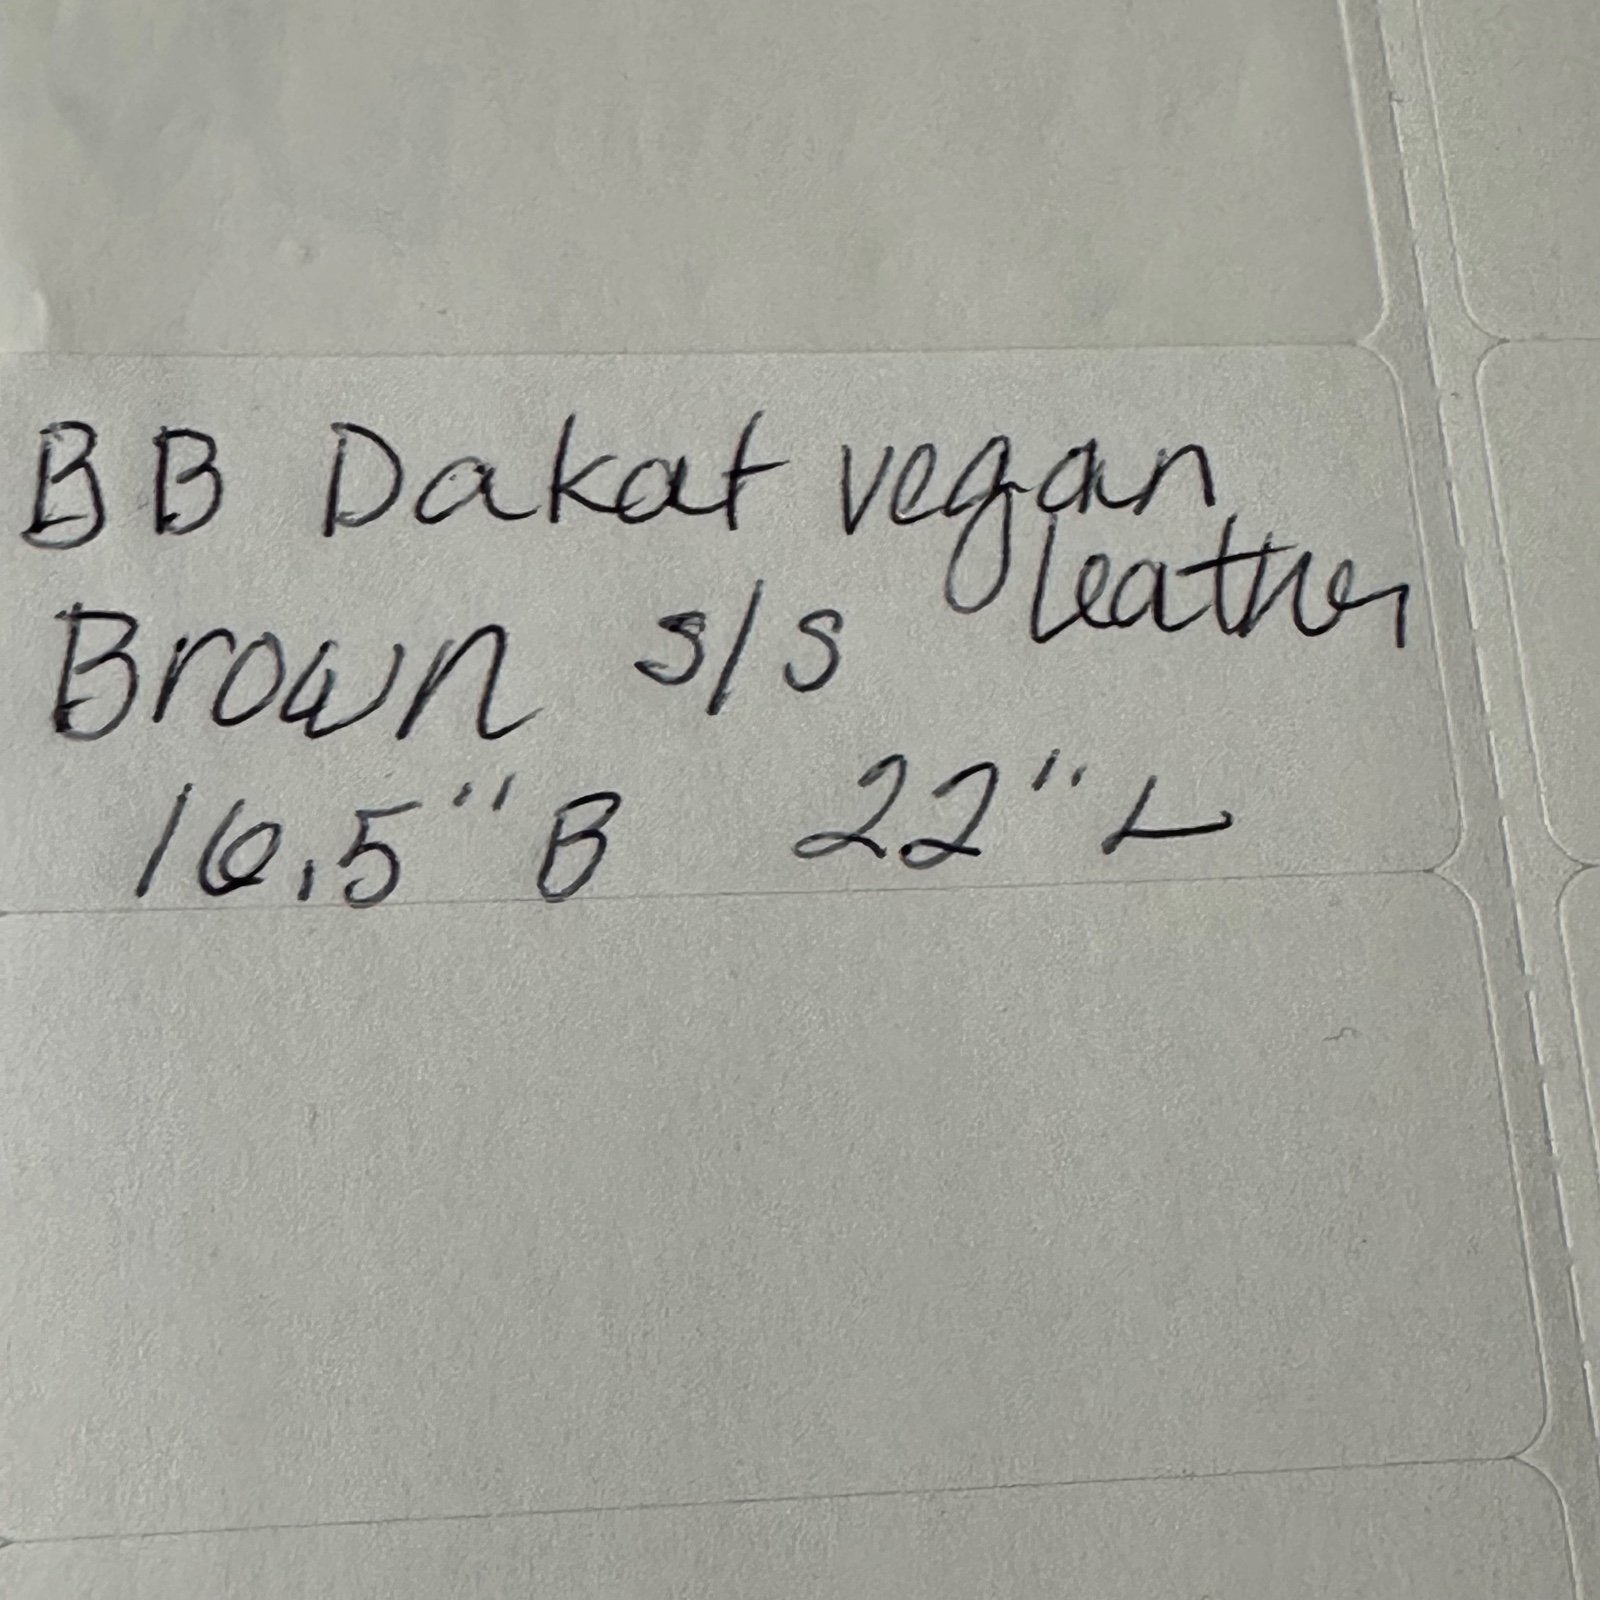 BB Dakat vegan
leather
Brown s/s
16.5" B 22" L